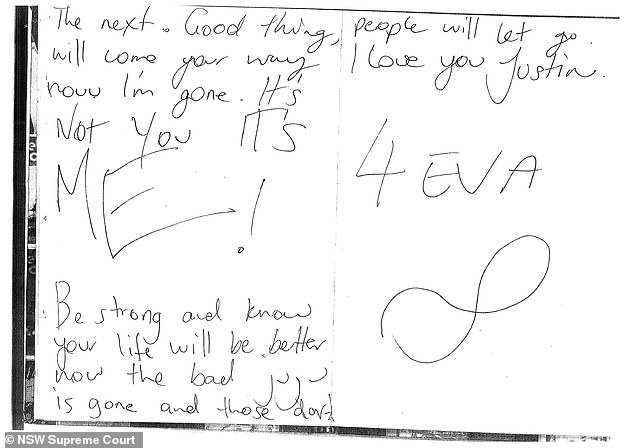 The next. Good thing,
will come your way
now I'm gone. It's
Not You ITS
ME!
Be strong and know
your life will be better
now the bad
is gone and those
people will let go.
I love you Justin.
4 EVA
© NSW Supreme Court